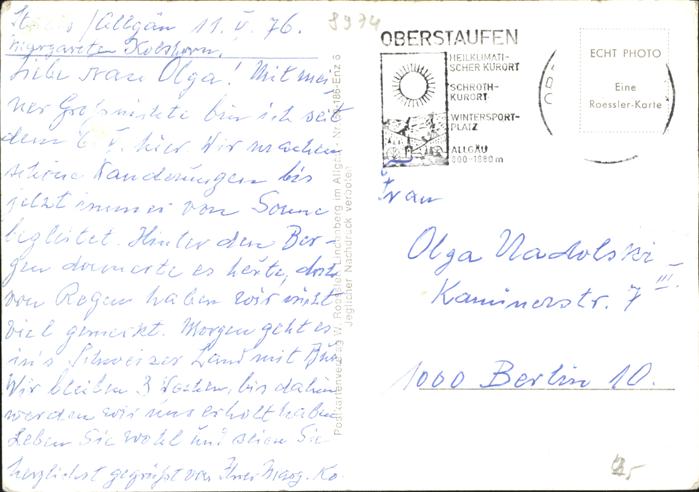 /Allgäu 11.V.76.
8974
Margareten Kolshorn.
Liebe Frau Olga! Mit mei-
ner Großnichte bin ich seit
dem 6.V. hier. Wir machen
schöne Wanderungen bis
jetzt immer von Sonne
begleitet. Hinter den Ber-
gen donnerte es heute, doch
von Regen haben wir nicht
viel gemerkt. Morgen geht es
in's Schweizer Land mit
Wir bleiben 3 Wochen, bis dahin
werden wir uns erholt haben
Leben Sie wohl und seien Sie
herzlichst gegrüßt von Ihrer Marg. Ko.
Postkartenverlag W. Roessler, im Allgäu
Jeglicher Nachdruck verboten
OBERSTAUFEN
HEILKLIMATI-
SCHER KURORT
SCHROTH-
KURORT
WINTERSPORT-
PLATZ
ALLGÄU
800-1880 m
ECHT PHOTO
Eine
Roessler-Karte
Frau
Olga Nadolski -
Kaminerstr. 7 III.
1000 Berlin 10.